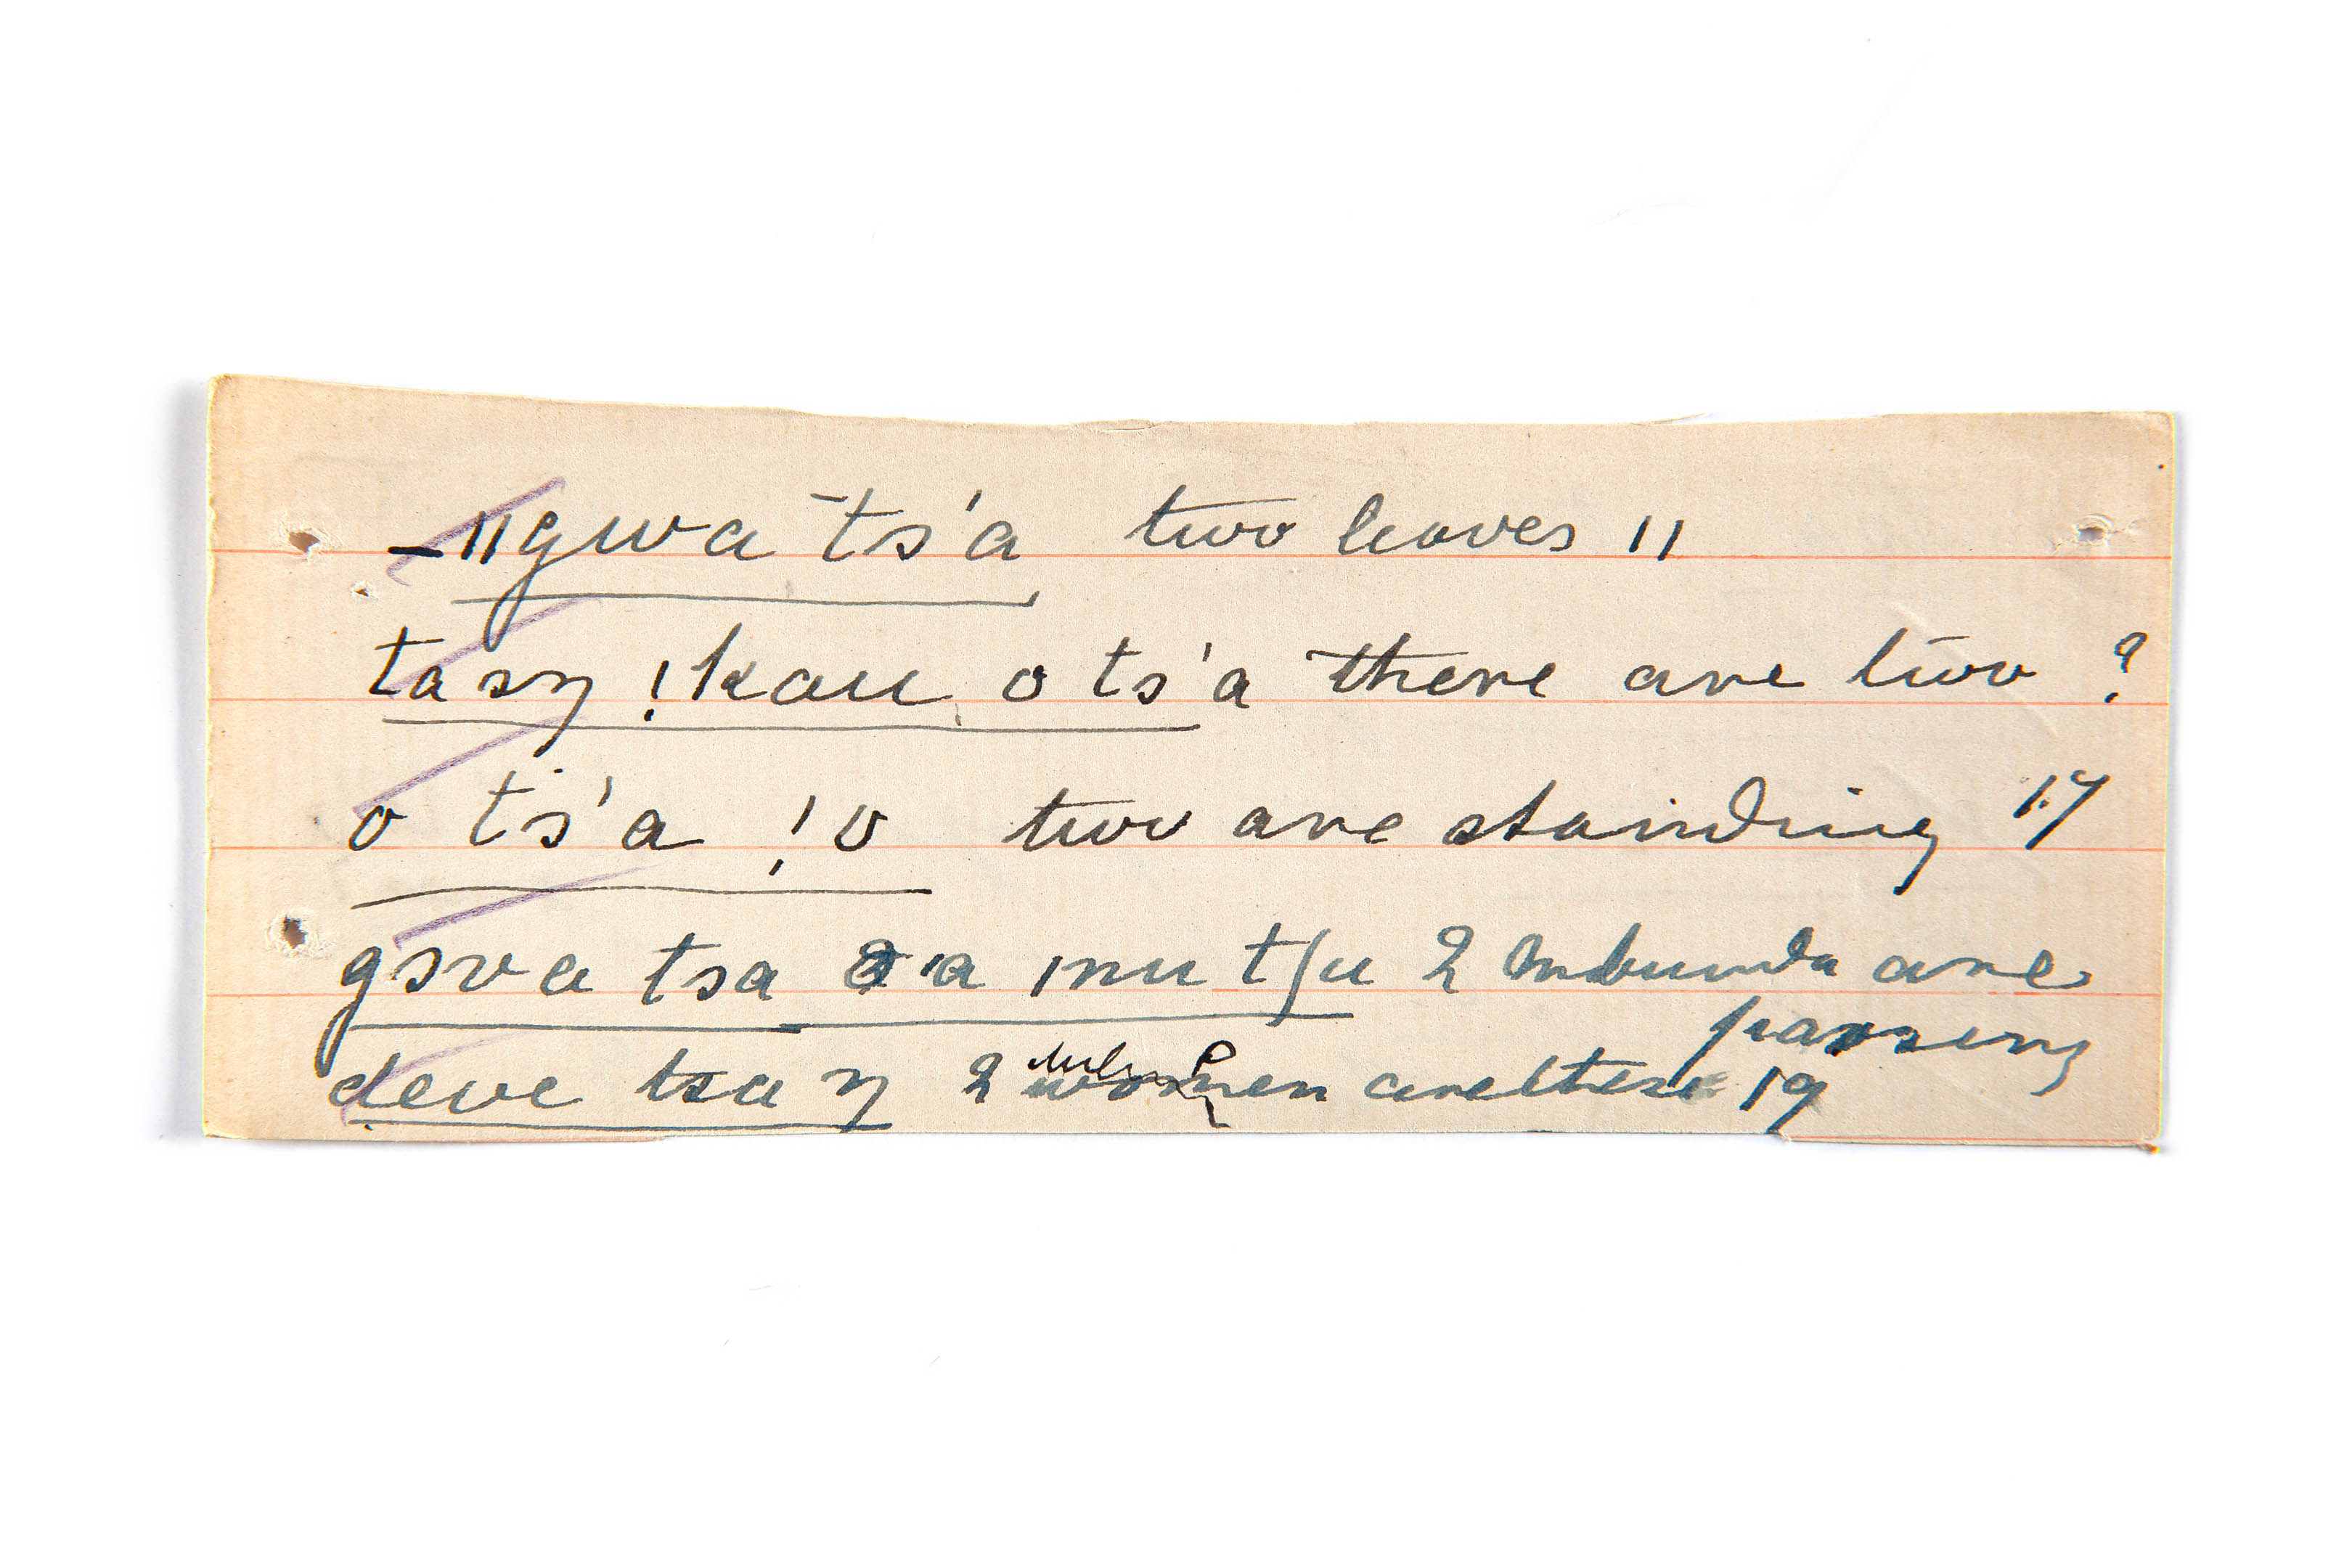 –ǁgwa ts'a two leaves 11
tasŋ !kau o ts'a there are two ?
o ts'a !o two are standing 17
gɔva tsa a 'a mutʃu 2 Mbunda are
passing
deve tsa ŋ 2 women are there 19